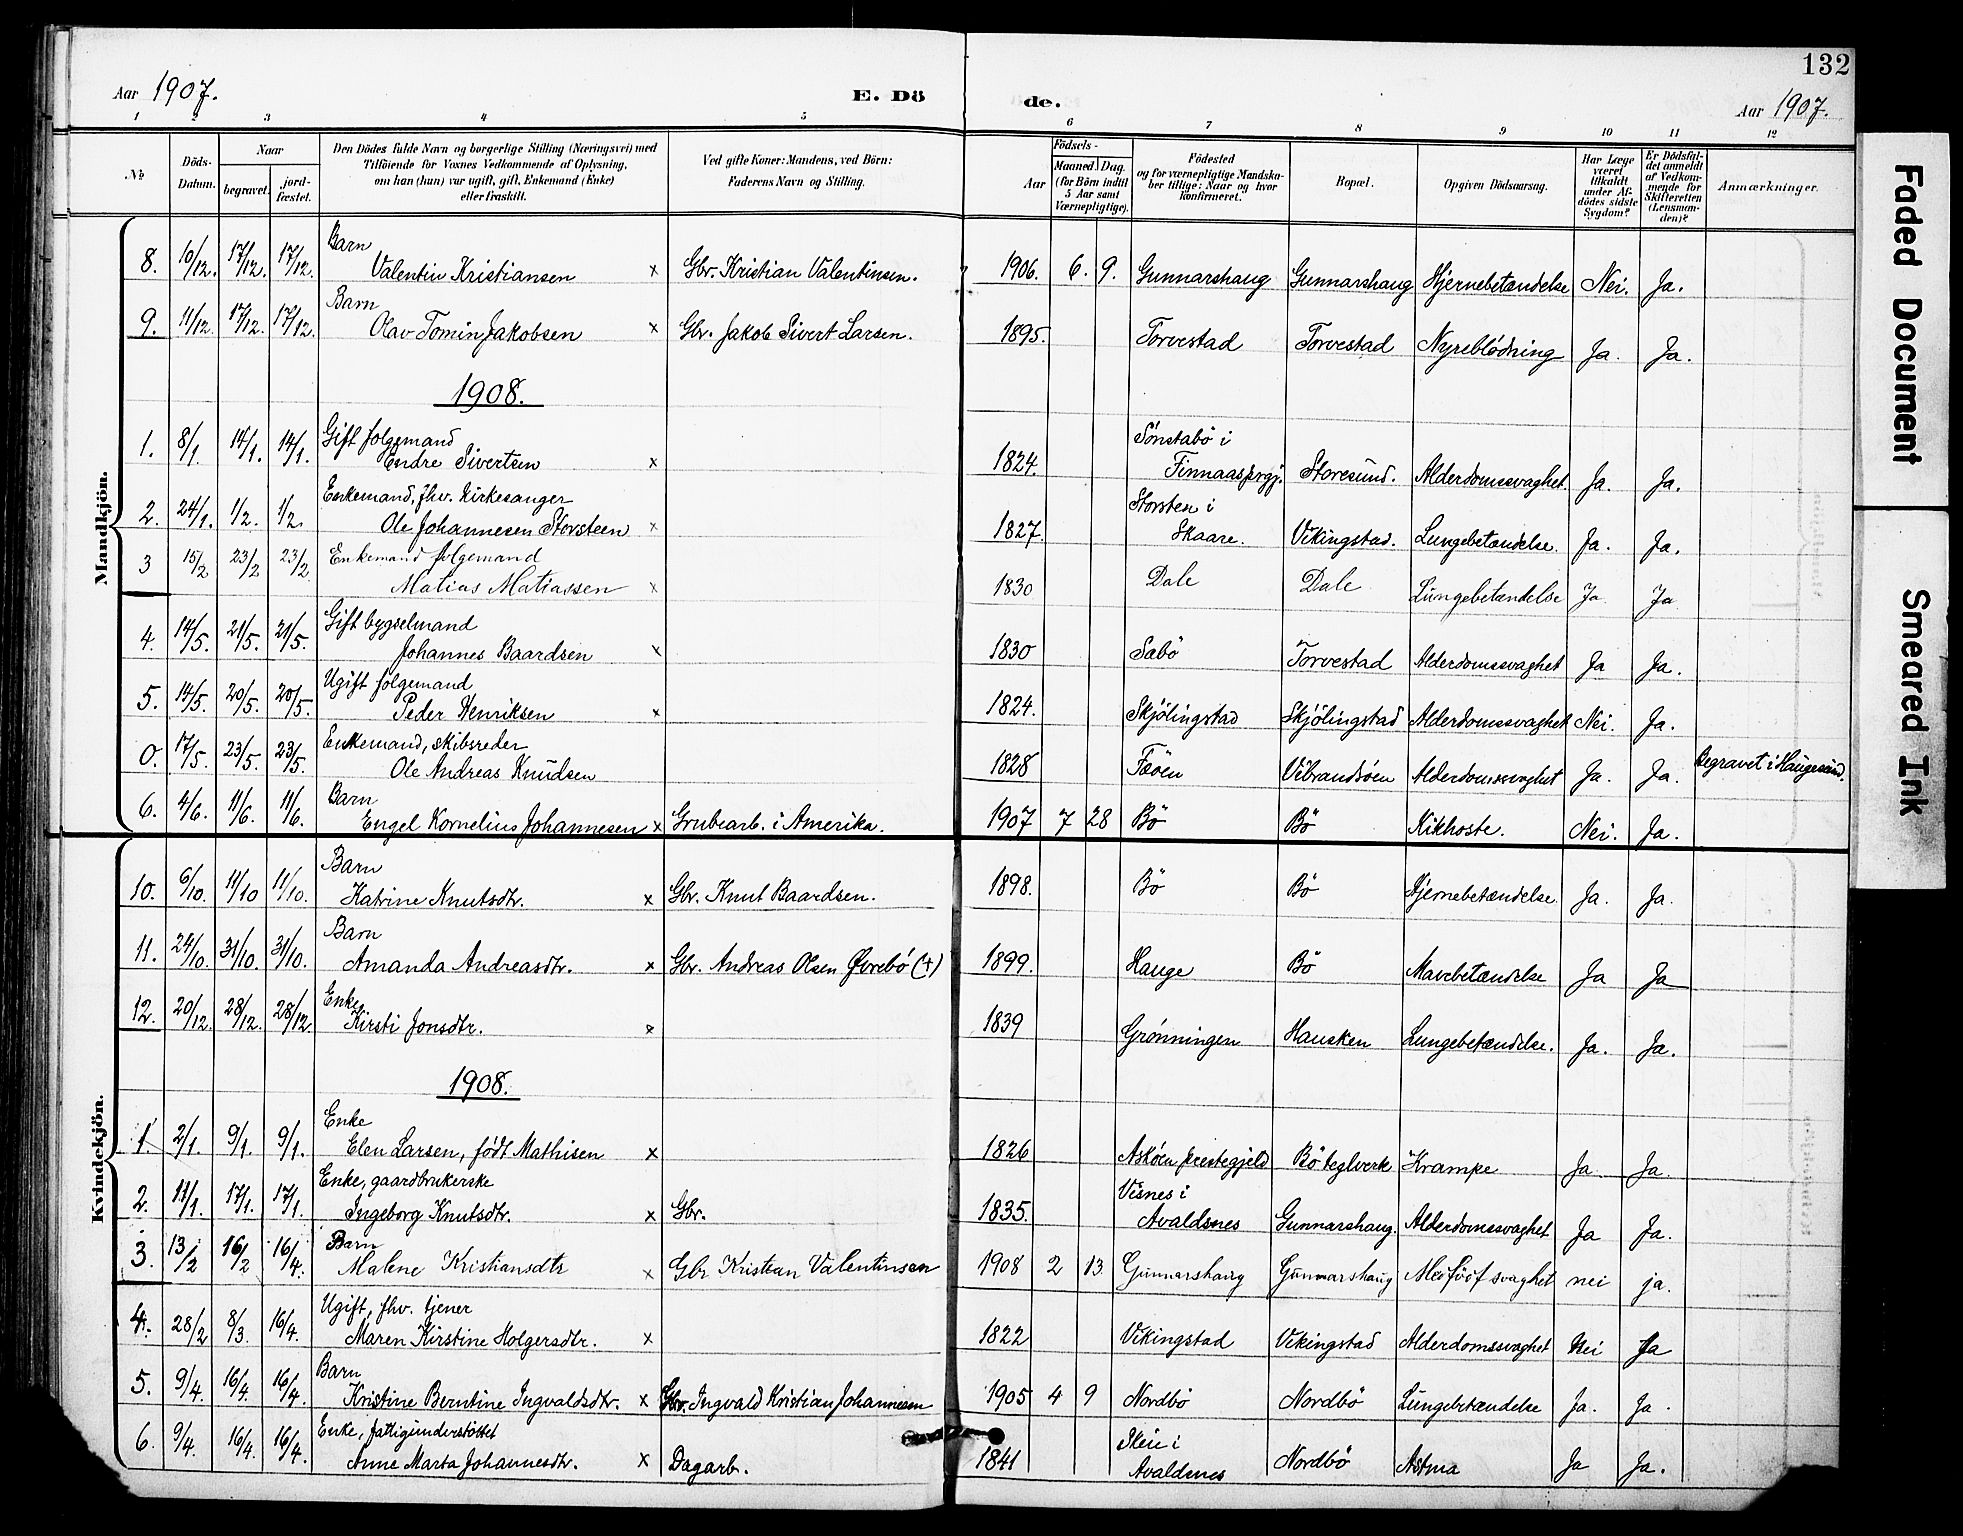 132
Aar 1907.
E. Dö
de.
Aar 1907.
1 2 3 4 5 6 7 8 9 10 11 12
№
Döds-
Datum.
Naar
begravet.
jord-
fæstet.
Den Dödes fulde Navn og borgerlige Stilling (Næringsvei) med
Tilföiende for Voxnes Vedkommende af Oplysning,
om han (hun) var ugift, gift, Enkemand (Enke)
eller fraskilt.
Ved gifte Koner: Mandens, ved Börn:
Faderens Navn og Stilling.
Födsels-
Aar
Maaned. Dag.
(for Börn indtil
5 Aar samt
Værnepligtige).
Födested
og for værnepligtige Mandska-
ber tillige: Naar og hvor
konfirmeret.
Bopæl.
Opgiven Dödsaarsag.
Har Læge
været
tilkaldt
under Af-
dödes sidste
Sygdom?
Er Dödsfal-
det anmeldt
af Vedkom-
mende for
Skifteretten
(Lensman-
den)?
Anmærkninger.
Mandkjön.
Barn
8. 10/12. 17/12. 17/12. Valentin Kristiansen x Gbr. Kristian Valentinsen. 1906. 6. 9. Gunnarshaug Gunnarshaug Hjernebetændelse Nei. Ja.
Barn
9. 11/12. 17/12. 17/12. Olav Tomin Jakobsen x Gbr. Jakob Sivert Larsen. 1895. Torvestad Torvestad Nyreblödning Ja. Ja.
1908.
Gift folgemand Sönstabö i
1. 8/1. 14/1. 14/1. Endre Sivertsen x 1824. Finnaas prgj. Storesund. Alderdomssvaghet. Ja. Ja.
Enkemand, fhv. Kirkesanger Storsten i
2. 24/1. 1/2. 1/2. Ole Johannesen Storsteen x 1827. Skaare. Vikingstad. Lungebetændelse. Ja. Ja.
Enkemand folgemand
3 15/2 23/2 23/2 Matias Matiassen x 1830 Dale Dale Lungebetændelse Ja Ja
Gift bygselmand
4. 14/5. 21/5. 21/5. Johannes Baardsen x 1830 Sæbö Torvestad Alderdomssvaghet Ja Ja.
Ugift folgemand
5. 14/5. 20/5. 20/5. Peder Henriksen x 1824. Skjölingstad Skjölingstad Alderdomssvaghet Nei. Ja.
Enkemand, skibsreder
0. 17/5. 23/5. 23/5. Ole Andreas Knudsen 1828 Fæöen Vibrandsöen Alderdomssvaghet Ja. Ja. Begravet i Haugesund.
Barn
6. 4/6. 11/6. 11/6. Engel Kornelius Johannesen x Grubearb. i Amerika. 1907 7 28 Bö Bö Kikhoste. Nei. Ja.
Kvindekjön.
Barn
10. 6/10. 11/10 11/10. Katrine Knutsdtr. x Gbr. Knut Baardsen. 1898. Bö Bö Hjernebetændelse Ja. Ja.
Barn
11. 24/10. 31/10. 31/10. Amanda Andreasdtr. x Gbr. Andreas Olsen Øvrebö (+) 1899. Hauge Bö Mavebetændelse Ja Ja
Enke
12. 20/12. 28/12. 28/12. Kirsti Jonsdtr. x 1839 Grönningen Hausken Lungebetændelse. Ja. Ja.
1908.
Enke
1. 2/1. 9/1. 9/1. Elen Larsen, födt Mathisen x 1826 Asköen prestegjeld Bö teglverk Krampe Ja Ja.
Enke, gaardbrukerske Visnes i
2. 11/1. 17/1. 17/1. Ingeborg Knutsdtr. x Gbr. 1835. Avaldsnes Gunnarshaug. Alderdomssvaghet Ja Ja.
Barn
3. 13/2 16/2 16/4. Malene Kristiansdtr x Gbr Kristian Valentinsen 1908 2 13 Gunnarshaug Gunnarshaug svaghet nei ja.
Ugift, fhv. tjener
4. 28/2 8/3. 16/4. Maren Kirstine Holgersdtr. x 1822 Vikingstad Vikingstad Alderdomssvaghet Nei Ja
Barn
5. 9/4. 16/4. 16/4. Kristine Berntine Ingvaldsdtr. x Gbr. Ingvald Kristian Johannesen 1905 4 9 Nordbö Nordbö Lungebetændelse Ja. Ja.
Enke, fattigunderstöttet Skeie i
6. 9/4. 16/4. 16/4. Anne Marta Johannesdtr. x Dagarb. 1841 Avaldsnes Nordbö Astma Ja Ja.
Faded Document
Smeared Ink